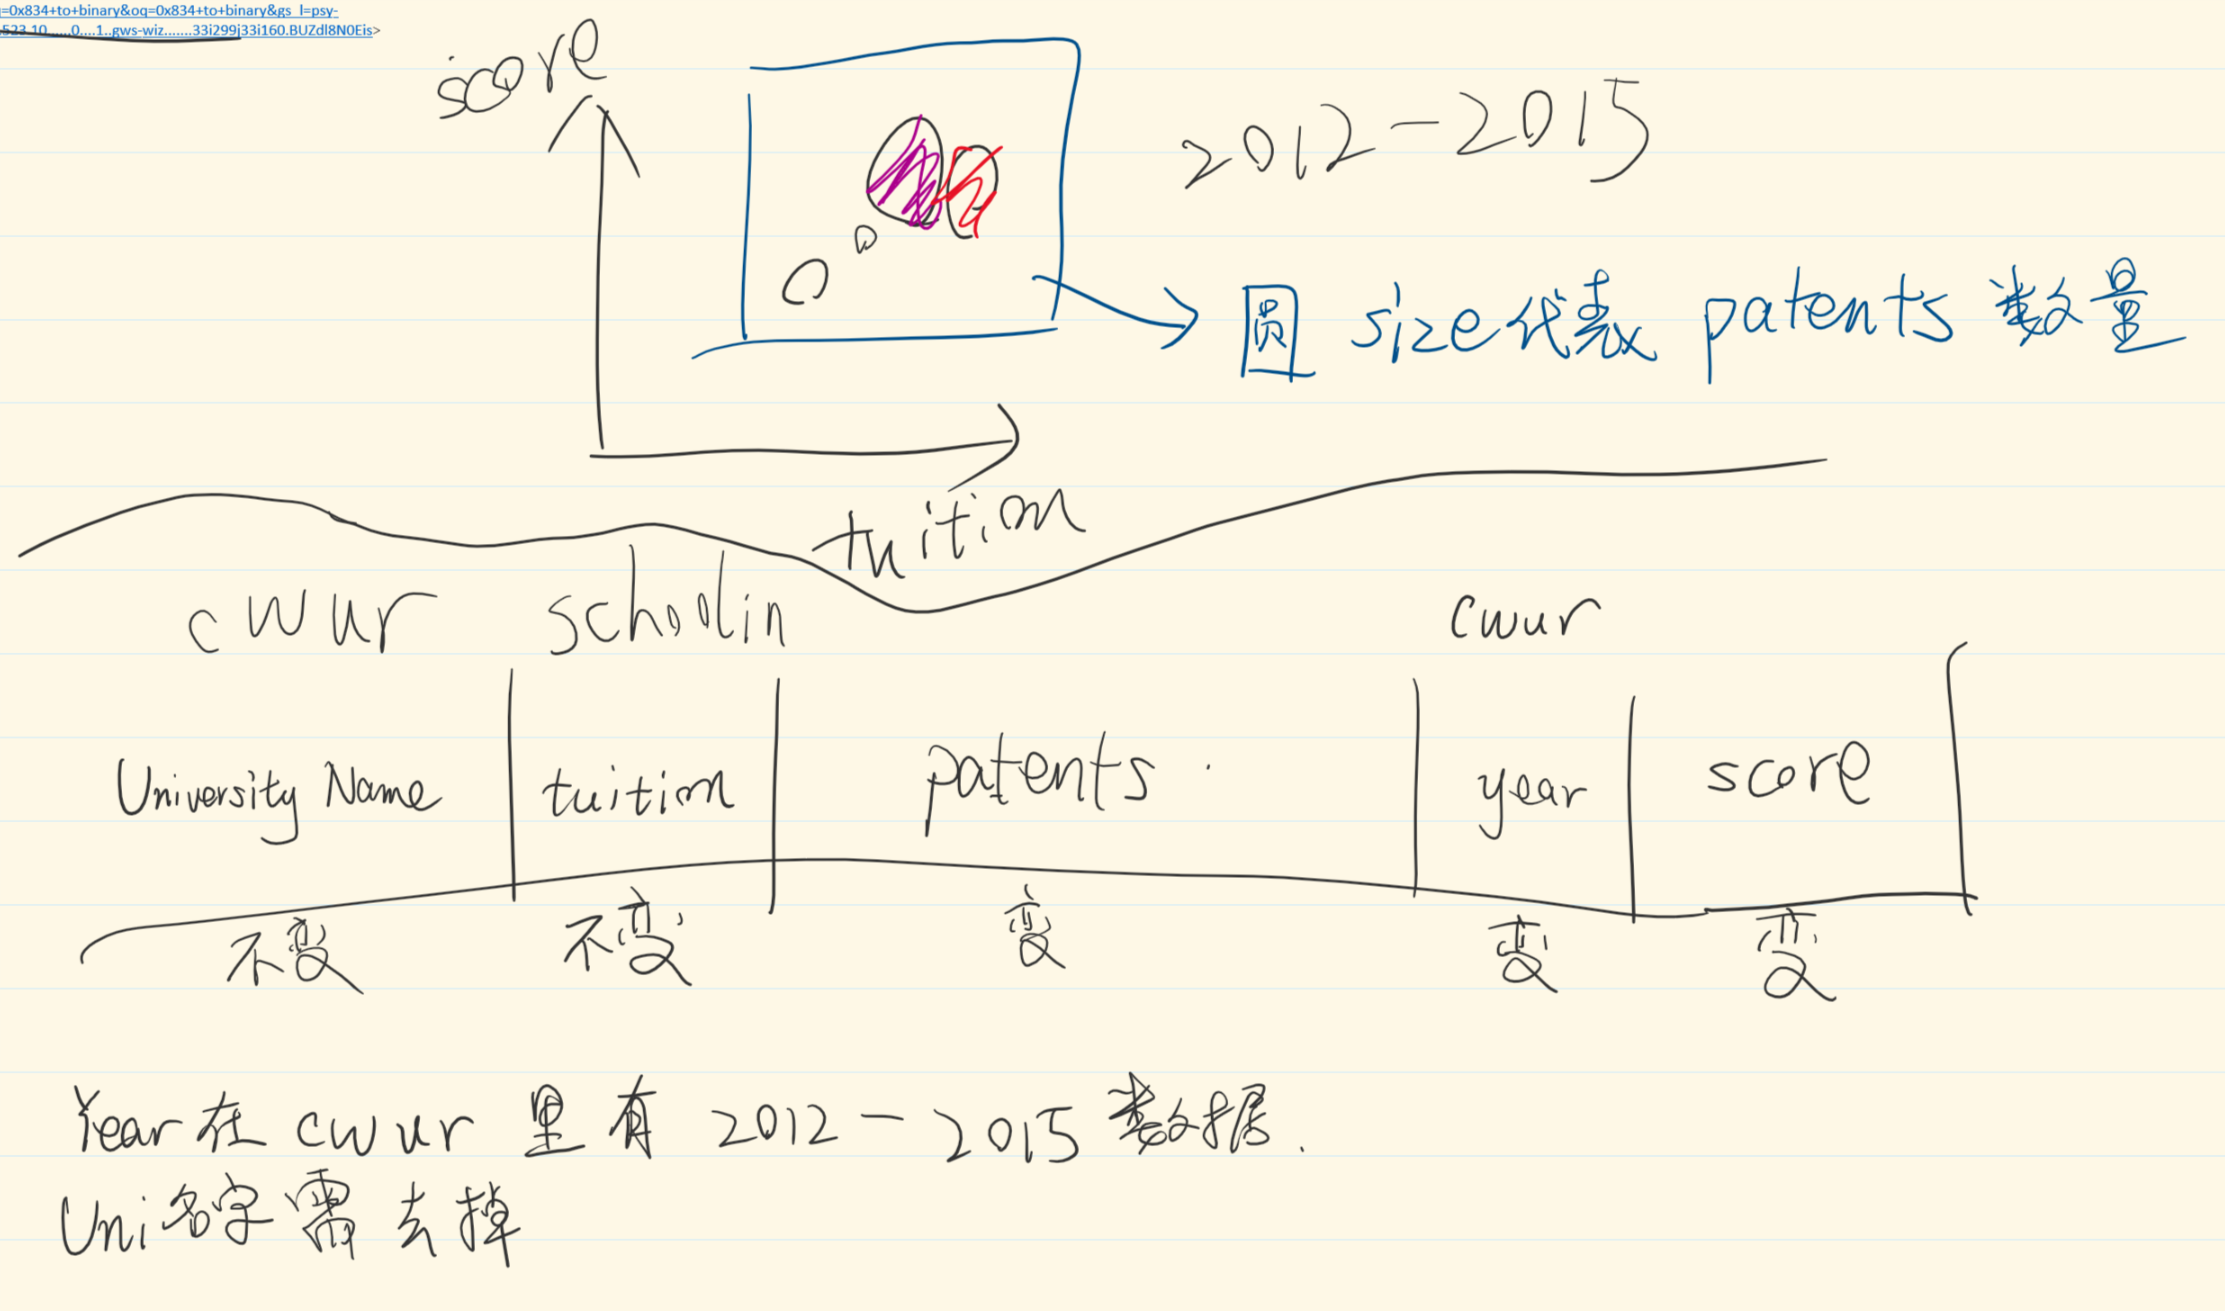 =0x834+to+binary&oq=0x834+to+binary&gs_l=psy-
.523.10.....0....1..gws-wiz.......33i299j33i160.BUZdl8N0Eis>
score
2012-2015
圆 size代表 patents 数量
tuition
cwur schoolin cwur
University Name tuition patents year score
不变 不变 变 变 变
Year在 cwur 里有 2012-2015 数据.
Uni名字需去掉